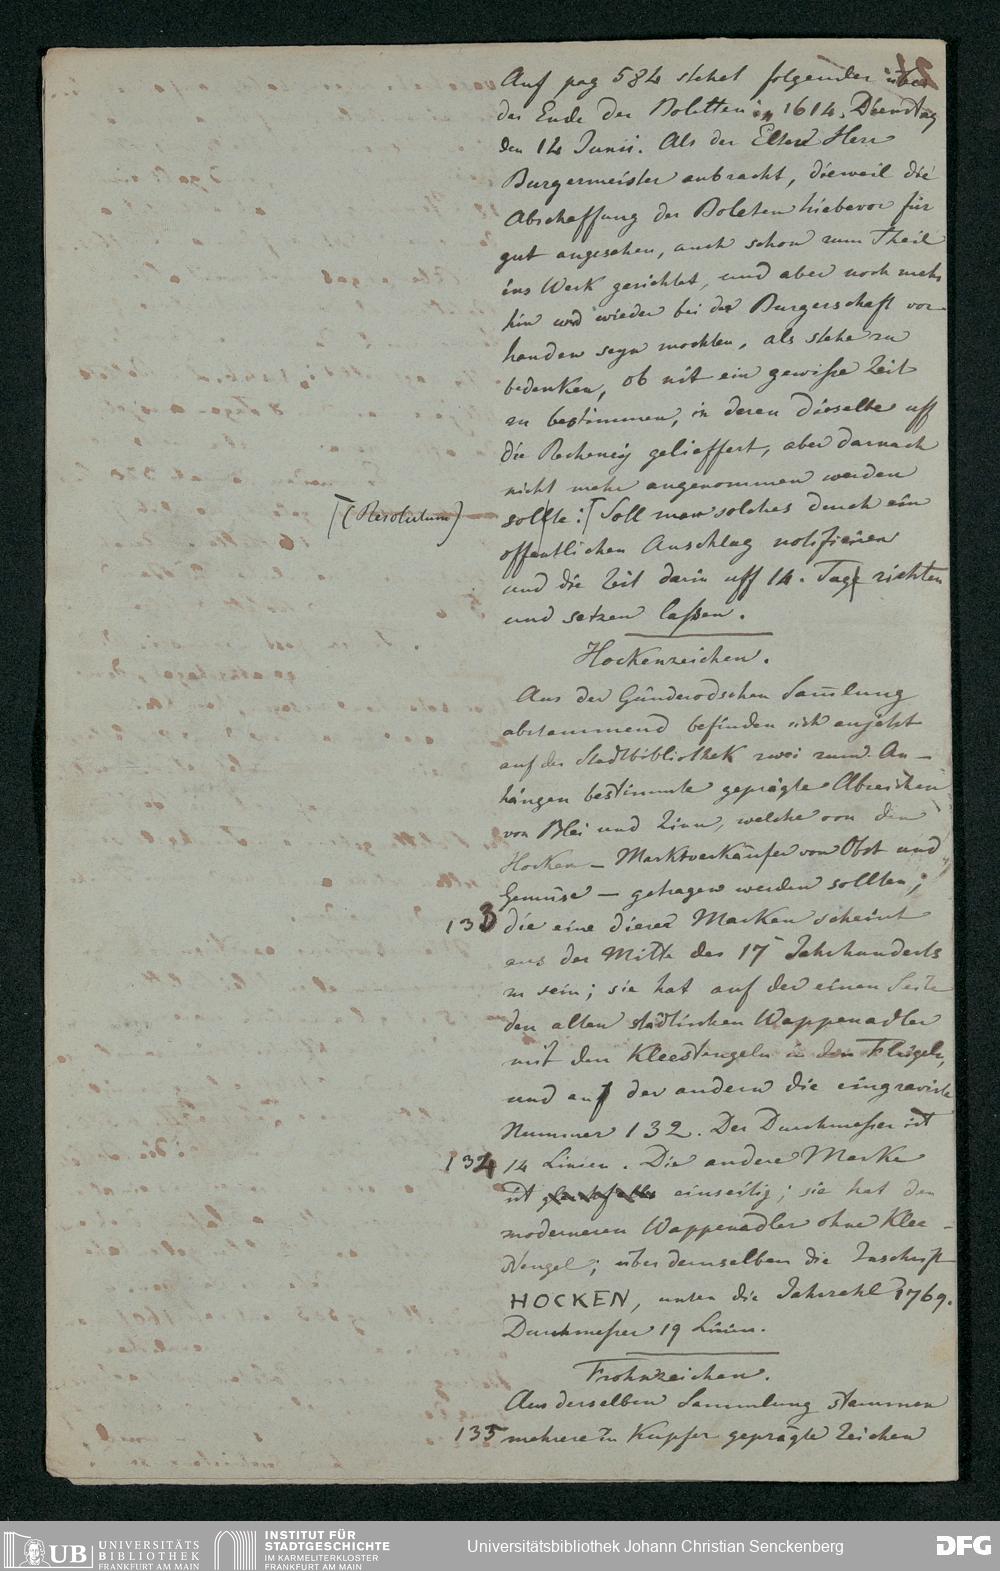 Auf pag 584 stehet folgender über
das Ende der Boletten: 1614. Dienstag
den 14 Junii. Als der Elter Herr
Burgermeister anbracht, dieweil die
Abschaffung der Boleten hiebevor für
gut angesehen, auch schon zum Theil
ins Werk gerichtet, und aber noch mehr
hin und wieder bei der Burgerschaft vor-
handen seyn mochten, als stehe zu
bedenken, ob nit ein gewiße Zeit
zu bestimmen, in deren dieselbe uff
die Recheney gelieffert, aber darnach
nicht mehr angenommen werden
(Resolutum)
sollte: Soll man solches durch ein
offentlichen Anschlag notifiziren
und die Zeit darin uff 14. Tag richten
und setzen laßen.
Hockenzeichen.
Aus der Günderodschen Samlung
abstammend befinden sich anjetzt
auf der Stadtbibliothek zwei zum An-
hängen bestimmte geprägte Abzeichen
von Blei und Zinn, welche von den
Hocken – Marktverkäufer von Obst und
Gemüse – getragen werden sollten;
133 die eine dieser Marken scheint
aus der Mitte des 17 Jahrhunderts
zu sein; sie hat auf der einen Seite
den alten städtischen Wappenadler
mit den Kleestengeln in den Flügeln,
und auf der andern die eingravirte
Nummer 132. Der Durchmeßer ist
134 14 Linien. Die andere Marke
ist gleichfalls einseitig; sie hat den
moderneren Wappenadler ohne Klee-
stengel; über demselben die Inschrift
HOCKEN, unten die Jahrzahl 1769.
Durchmeßer 19 Linien.
Frohnzeichen.
Aus derselben Sammlung stammen
135 mehrere in Kupfer geprägte Zeichen
UB UNIVERSITÄTS
BIBLIOTHEK
FRANKFURT AM MAIN
INSTITUT FÜR
STADTGESCHICHTE
IM KARMELITERKLOSTER
FRANKFURT AM MAIN
Universitätsbibliothek Johann Christian Senckenberg
DFG